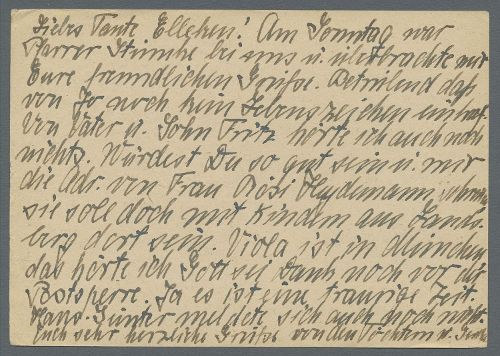 Liebe Tante Ellchen! Am Sonntag war
Pfarrer Stimke bei uns u. überbrachte mir
Eure freundlichen Grüße. Betrübend daß
von Jo noch kein Lebenszeichen eintraf.
Von Vater u. Sohn Fritz hörte ich auch noch
nichts. Würdest Du so gut sein u. mir
die Adr. von Frau Rösi Heydemann
sie soll doch mit Kindern aus Lands-
berg dort sein. Viola ist in München
das hörte ich Gott sei Dank noch vor der
Postsperre. Ja es ist eine traurige Zeit.
Hans-Günter meldete sich auch noch nicht.
Euch sehr herzliche Grüße von den Töchtern u.